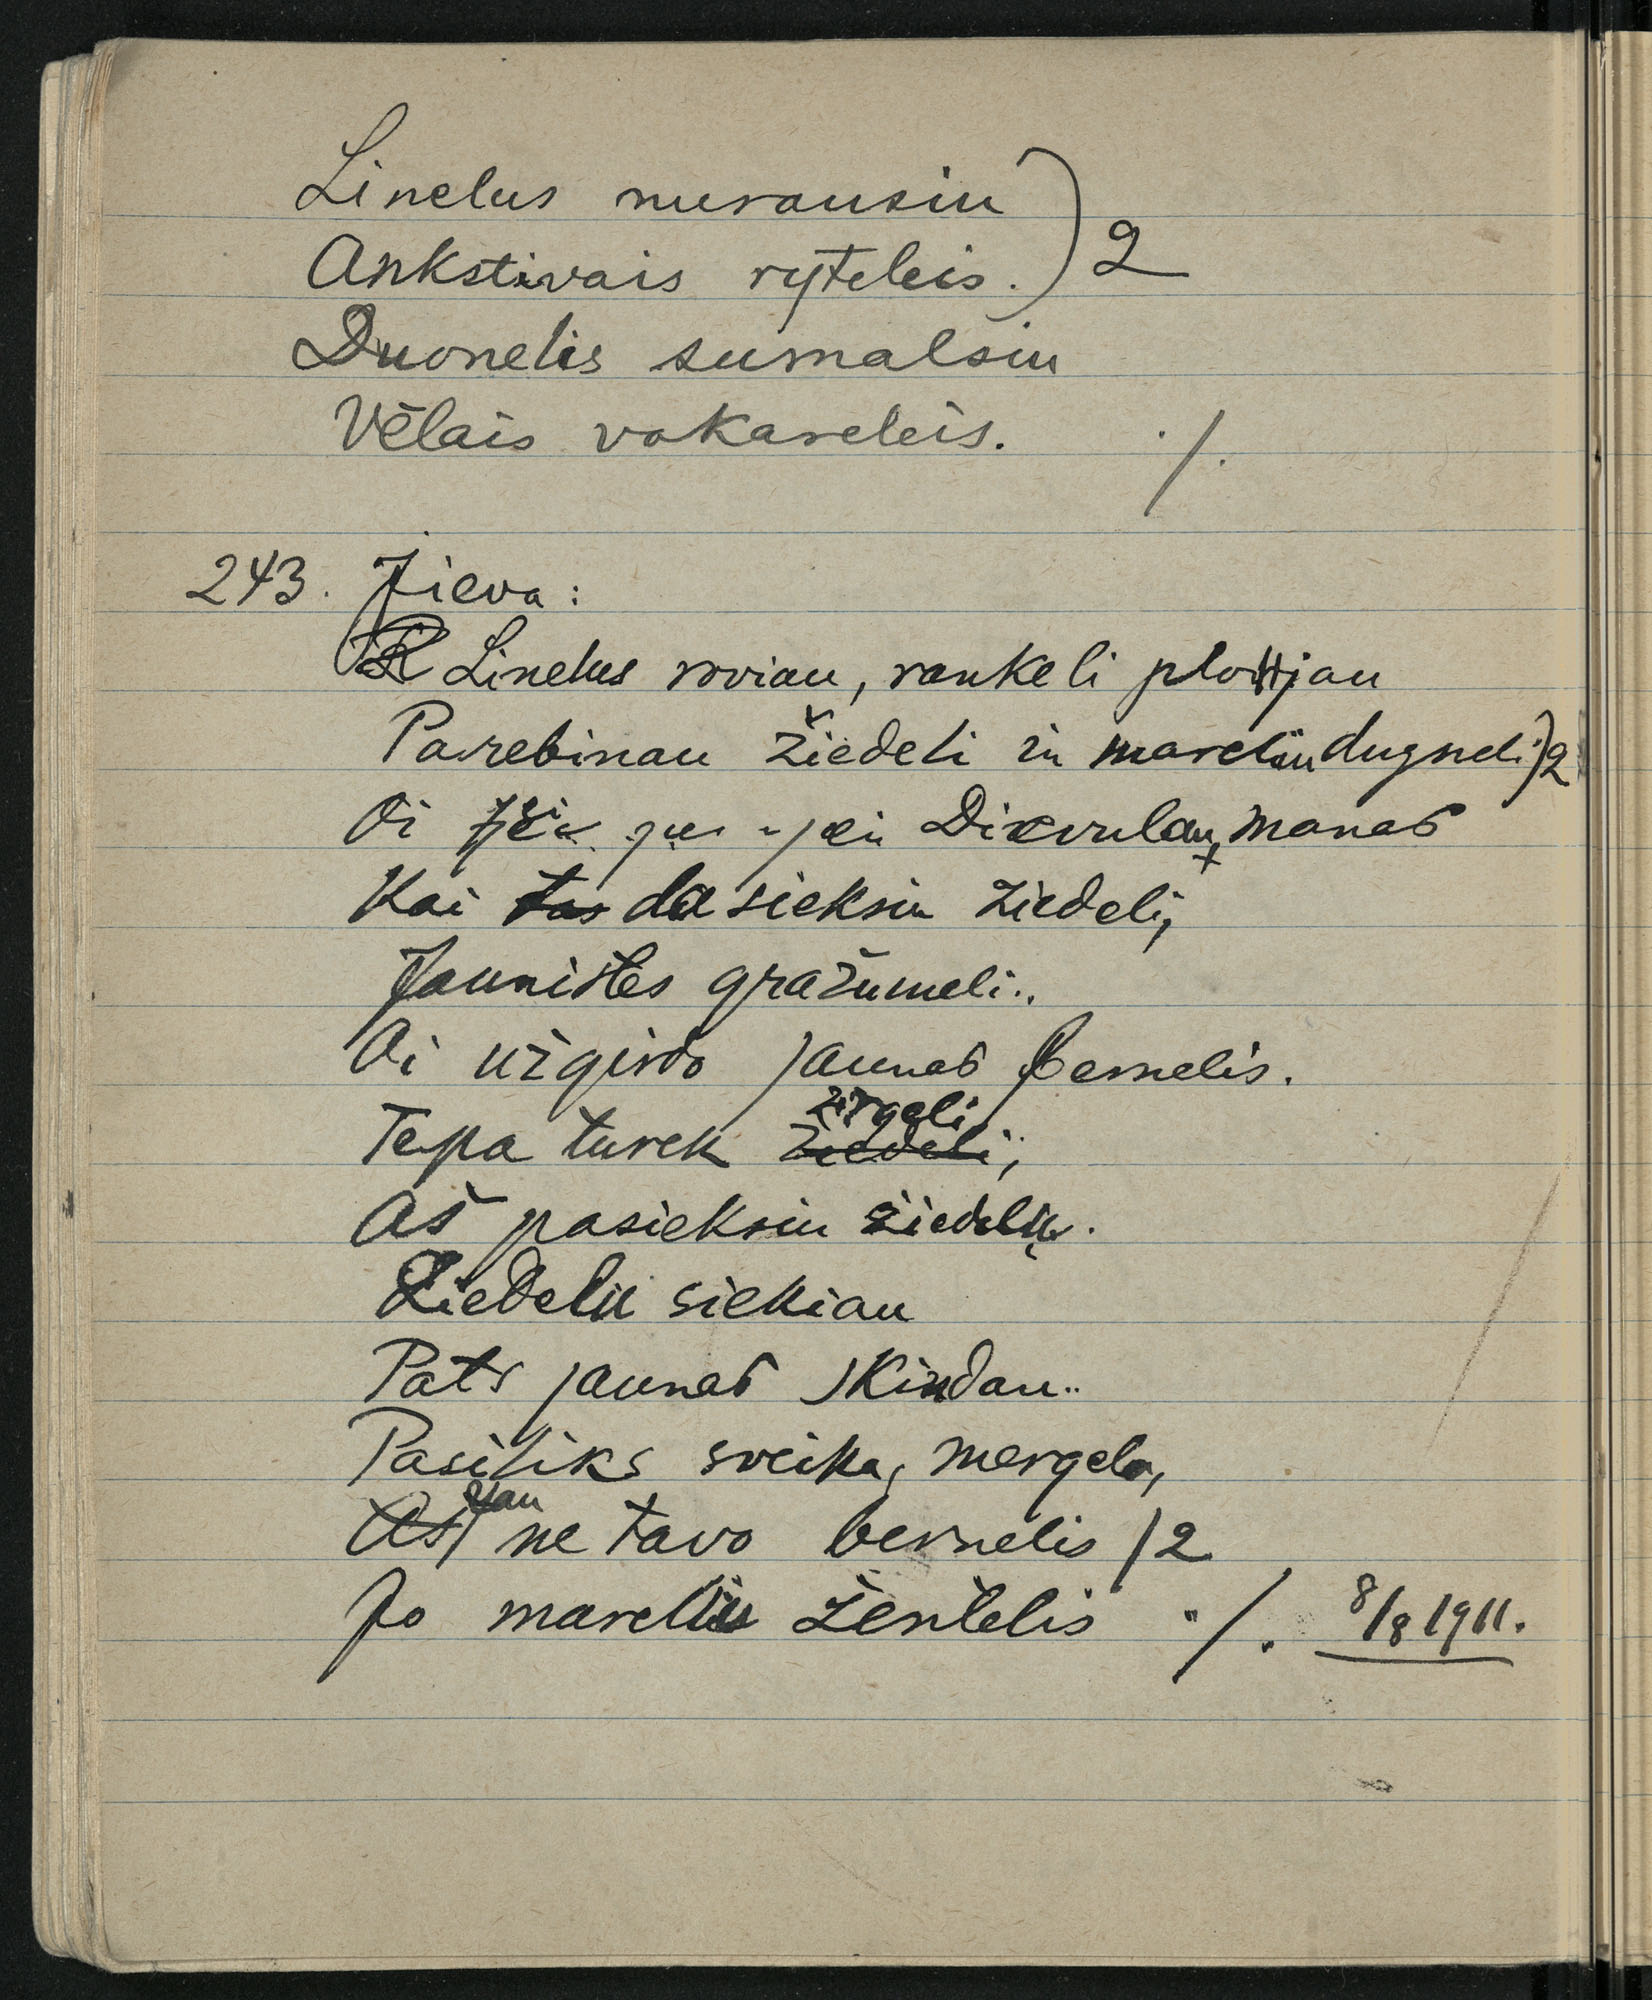 Linelus nurausiu ) 2
Ankstivais ryteleis.
Duonelis sumalsiu
Vėlais vakareleis. ./.
243. Jieva:
Linelus roviau, rankeli ploviau
Parebinau žiedeli in mareliu dugneli)2
Oi Dievulau, manas
Kai tas da sieksiu žiedeli,
Jaunistes gražumeli..
Oi užgirdo jaunas bernelis.
Tepa turek žiedeli žirgeli,
Aš pasieksiu žiedelų.
Žiedelu siekiau
Pats jaunas skindau..
Pasiliks sveika, mergela,
Aš jau ne tavo bernelis )2
Jo mareliu žentelis ./. 8/8 1911.